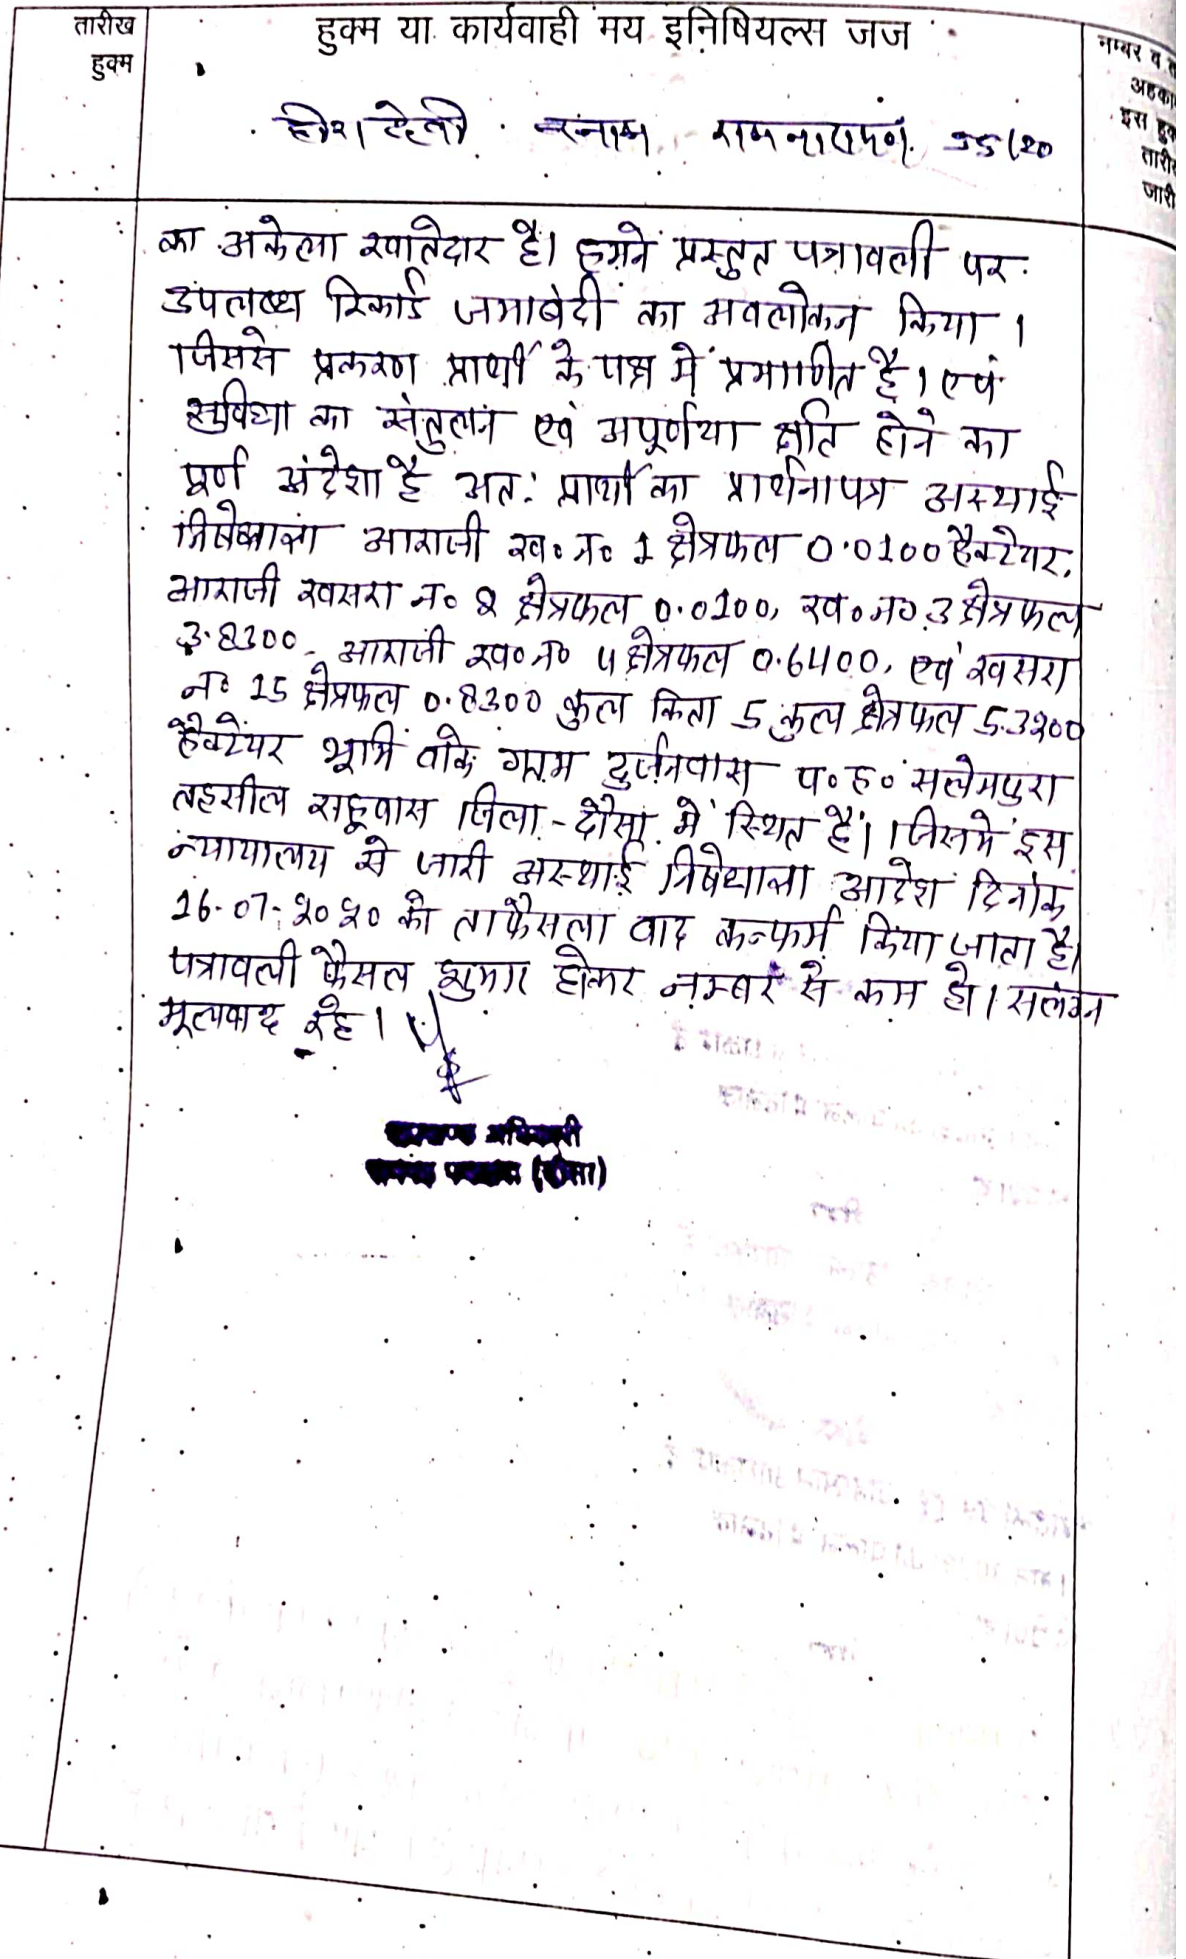 तारीख
हुक्म
हुक्म या कार्यवाही मय इनिषियल्स जज
नम्बर व
अहका
इस हुक
तारीख
जारी
बनाम रामनारायण 55/20
का अकेला खातेदार है। हमने प्रस्तुत पत्रावली पर
उपलब्ध रिकार्ड जमाबंदी का अवलोकन किया।
जिससे प्रकरण प्रार्थी के पक्ष में प्रमाणित है। एवं
सुविधा का संतुलन एवं अपूर्णया क्षति होने का
पूर्ण अंदेशा है अतः प्रार्थी का प्रार्थनापत्र अस्थाई
निषेधाज्ञा आराजी ख० न० 1 क्षेत्रफल 0.0100 हैक्टेयर,
आराजी खसरा न० 2 क्षेत्रफल 0.0100, ख० न० 3 क्षेत्रफल
3.8300, आराजी ख० न० 4 क्षेत्रफल 0.6400, एवं खसरा
न० 15 क्षेत्रफल 0.8300 कुल किता 5 कुल क्षेत्रफल 5.3200
हैक्टेयर भूमि वाके ग्राम दुर्जनवास प० ह० सलेमपुरा
तहसील राहूवास जिला - दौसा में स्थित है। जिसमें इस
न्यायालय से जारी अस्थाई निषेधाज्ञा आदेश दिनांक
16-07-2020 को ताफैसला वाद कन्फर्म किया जाता है।
पत्रावली फैसल शुमार होकर नम्बर से कम हो। सलंग्न
मूलवाद रहे।
अधिकारी
(दौसा)